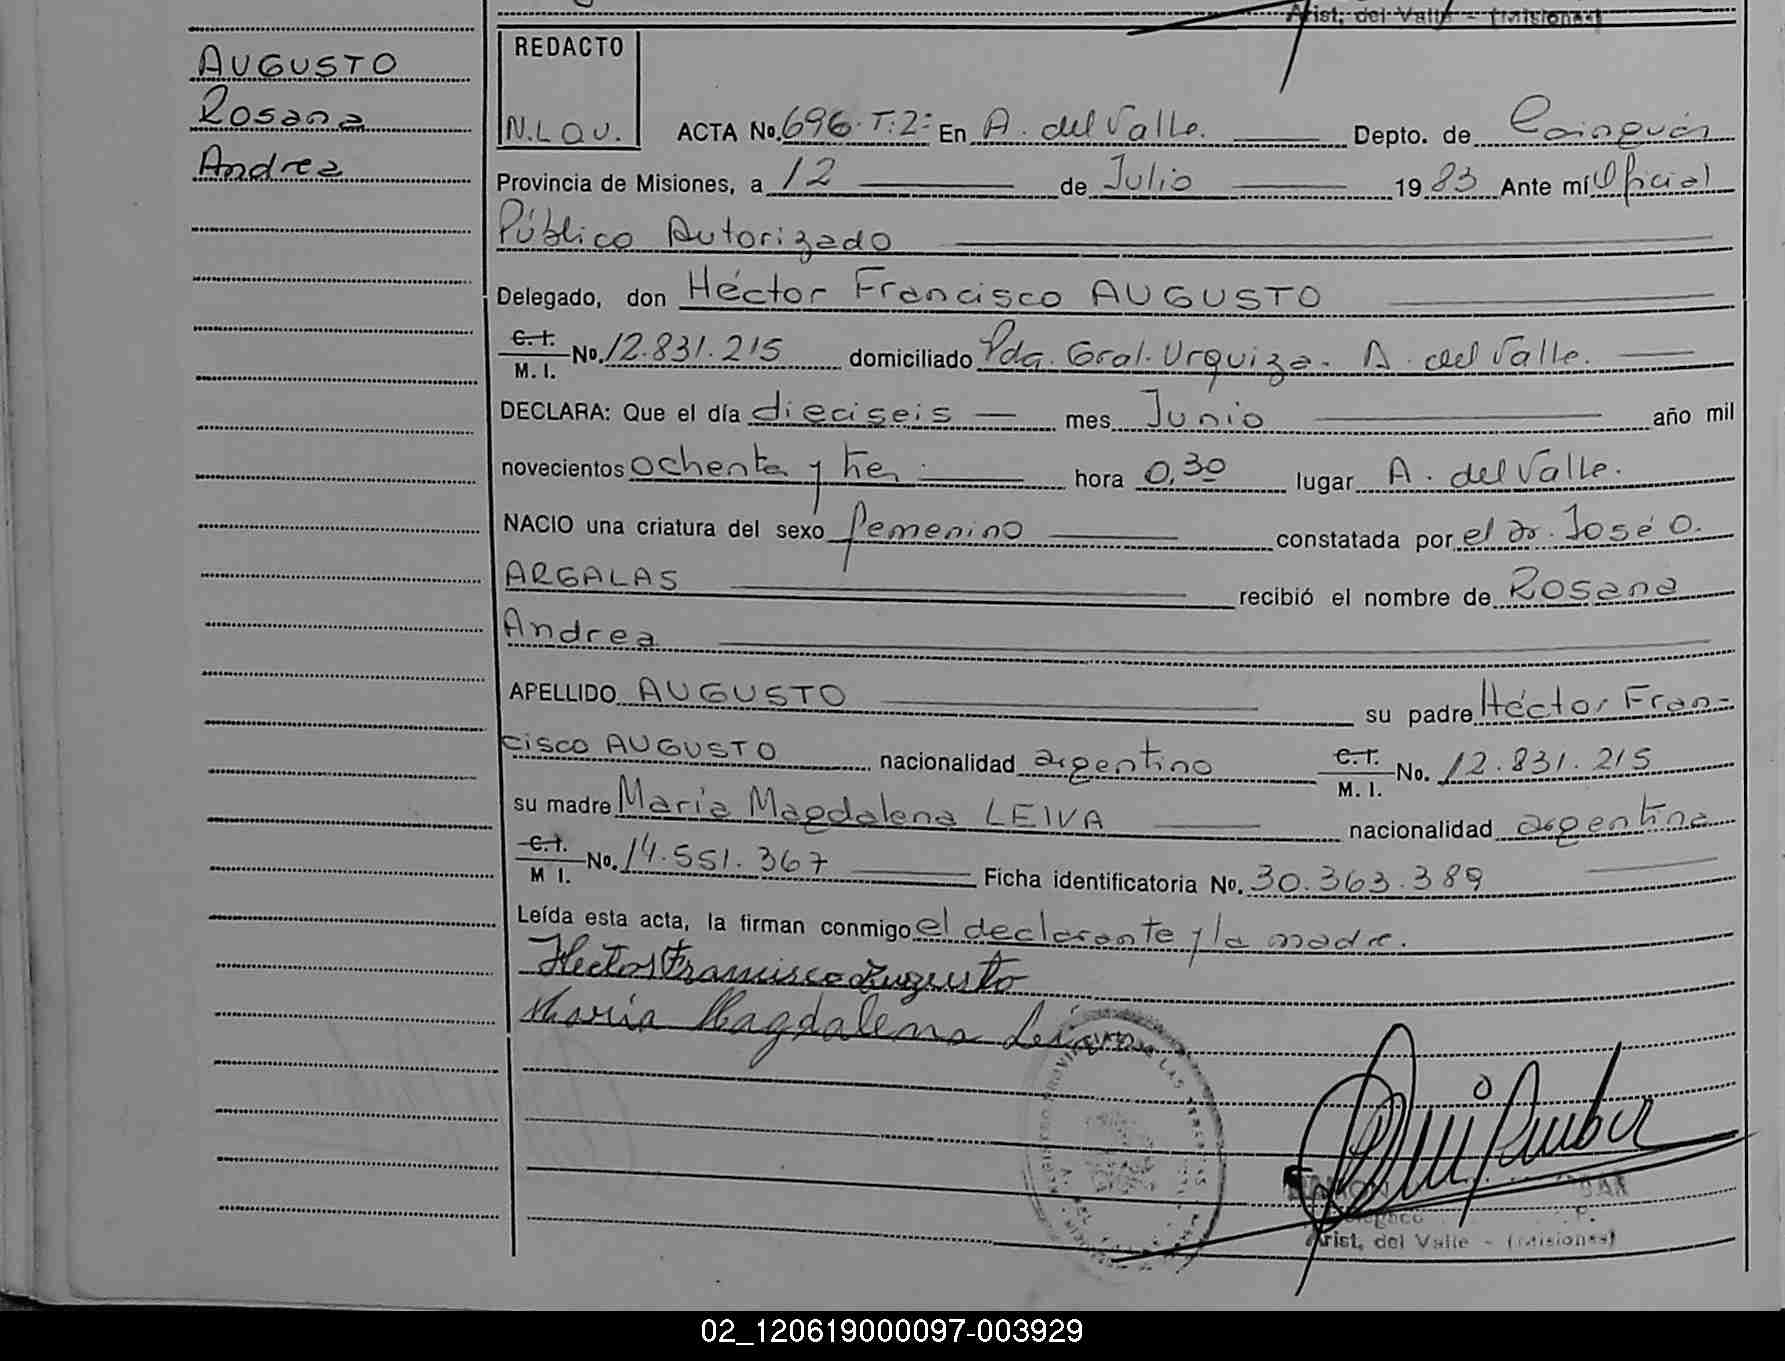 Arist. del Valle - (Misiones)
AUGUSTO
Rosana
Andrea
REDACTO
N.L.Q.U.
ACTA No. 696-T:2- En A. del Valle. Depto. de Cainguás
Provincia de Misiones, a 12 de Julio 1983 Ante mí Oficial
Público Autorizado
Delegado, don Héctor Francisco AUGUSTO
C.I. M.I. No. 12.831.215 domiciliado Pda. Gral. Urquiza. A. del Valle.
DECLARA: Que el día dieciseis mes Junio año mil
novecientos ochenta y tres hora 0,30 lugar A. del Valle.
NACIO una criatura del sexo femenino constatada por el Dr. José O.
ARGALAS recibió el nombre de Rosana
Andrea
APELLIDO AUGUSTO su padre Héctor Fran-
cisco AUGUSTO nacionalidad argentino C.I. M.I. No. 12.831.215
su madre María Magdalena LEIVA nacionalidad argentina
C.I. M I. No. 14.551.367 Ficha identificatoria No. 30.363.389
Leída esta acta, la firman conmigo el declarante y la madre.
Hector Francisco Augusto
María Magdalena Leiva
Arist. del Valle - (Misiones)
02_120619000097-003929